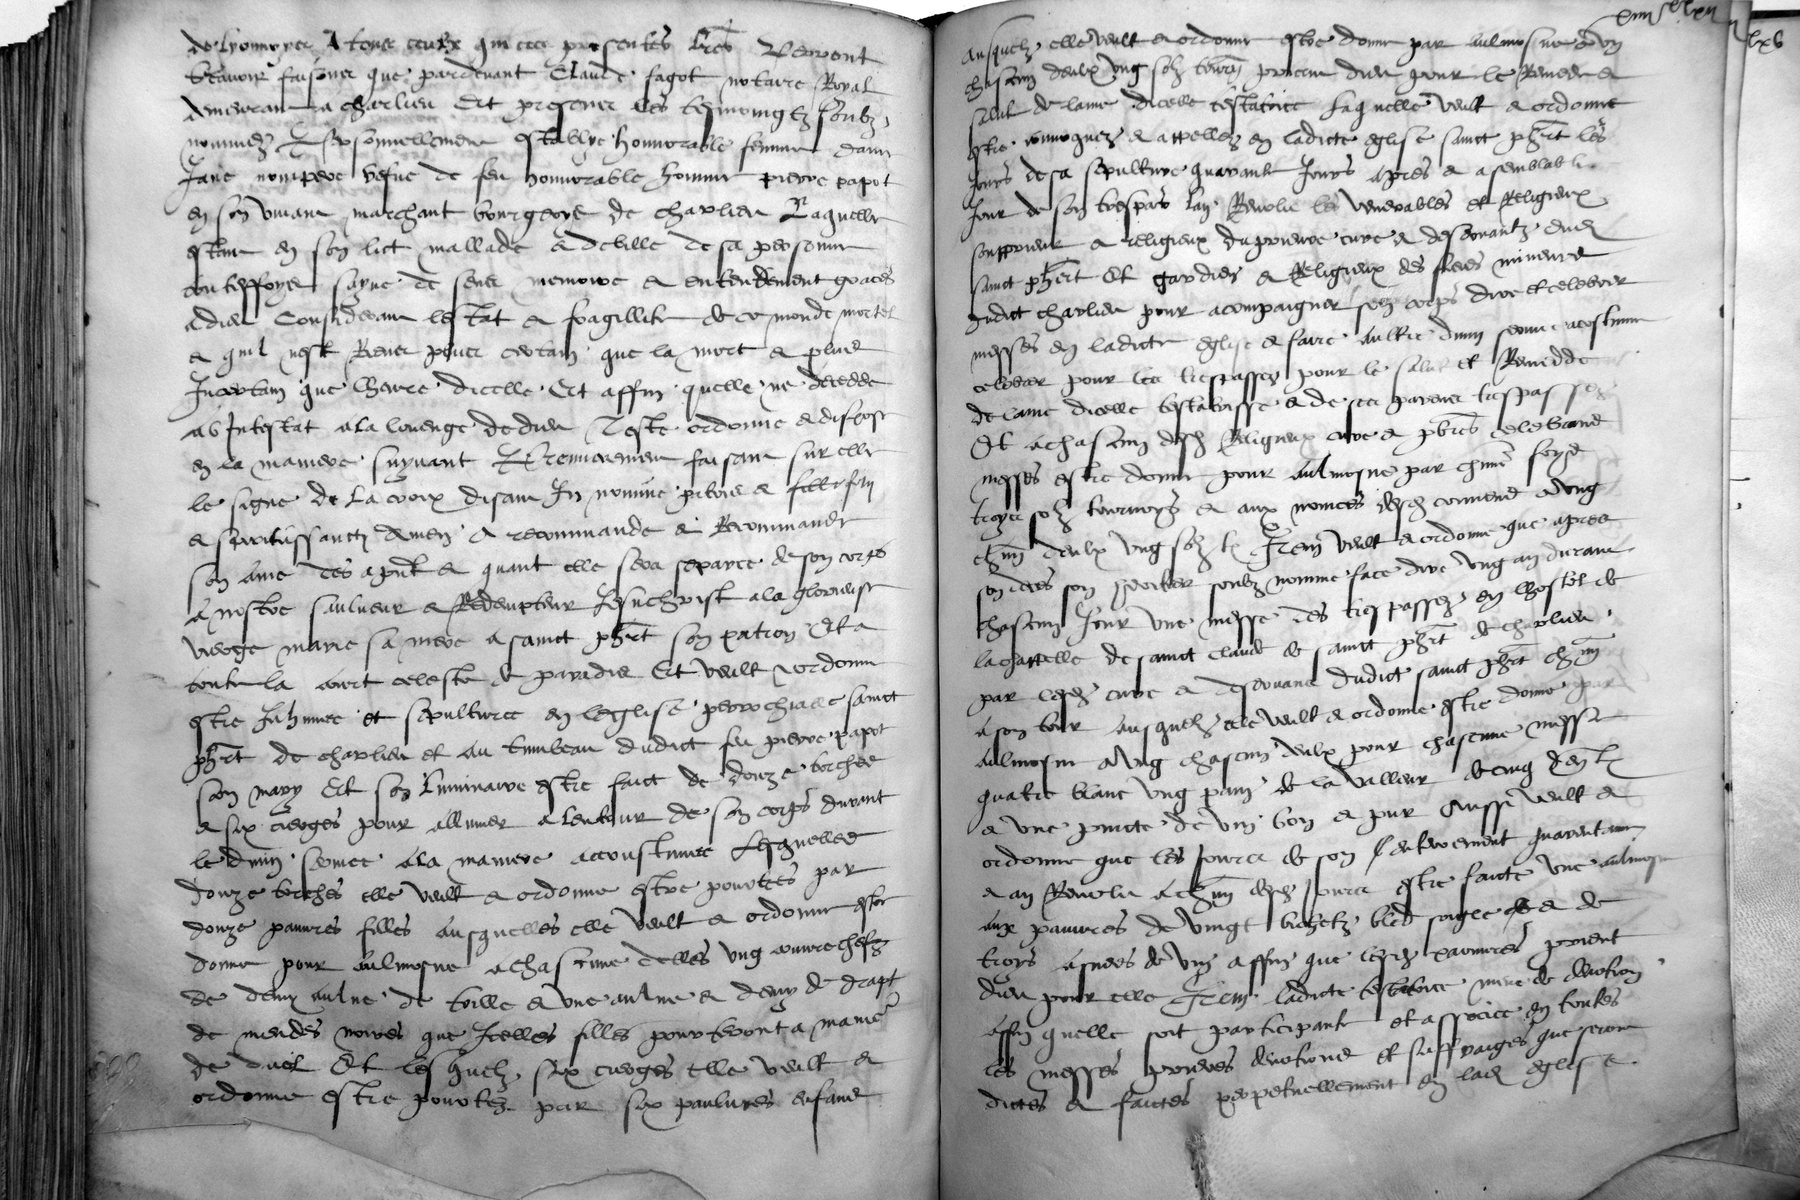 de lyonnoys A tous ceulx qui ces presentes lres verront
scavoir faisons que pardevant Claude fagot notaire Royal
demeurant a charlieu Et presens les tesmoingtz soubz
nommez personnellement establye honnorable femme dame
Jane vefve de feu honnorable homme pierre papot
en son vivant marchant bourgeoys de charlieu Laquelle
estant en son lict mallade & debille de sa personne
touteffoys sayne de sens memoire & entendement graces
a dieu Considerant lestat & fragillite de ce monde mortel
& quil nest Riens plus certain que la mort & plus
Incertain que lheure dicelle Et affin quelle ne decedde
ab Intestat a la louenge de dieu Teste ordonne & dispose
en la maniere suyvant Et premierement faisant sur elle
le signe de la croix disant In nomine patris & filii
& spiritussancti Amen A recommande & Recommande
son ame des apnt & quant elle sera separee de son corps
a nostre saulveur & Redempteur Jesuchrist a la glorieuse
vierge marie sa mere a sainct phbrt son patron Et a
toute la court celeste de paradis Et veult & ordonne
estre Inhumee et sepulturee en leglise perrochialle sainct
phbrt de charlieu et au tumbeau dudict feu pierre papot
son mary Et son luminaire estre faict de douze torches
& six cierges pour allumer a lentour de son corps durant
le divin service a la maniere accoustumee Lesquelles
douze torches elle veult & ordonne estre portees par
douze pauvres filles ausquelles elle veult & ordonne estre
donne pour aulmosne a chascune delles ung couvrechefz
de demy aulne de toille & une aulne & demy de drapt
de mendes noires que Icelles filles pourteront a maniere
de dueil Et lesquelz six cierges elle veult &
ordonne estre pourtez par six paulvres enfans
ausquelz elle veult & ordonne estre donne par aulmosne a ung
chascun deulx ung solz tournoys prieront dieu pour le Remede &
salut de lame dicelle testatrice Laquelle veult & ordonne
estre convoquez & appellez en ladicte eglise sainct phbrt les
Jours de sa sepulture quarante Jours apres & a semblable
Jour de son trespas lan Revolu les venerables et Religieux
soupprieur & religieux du prieure cure & desservantz dud
sainct phbrt Et gardien & Religieux des freres mineurs
dudict charlieu pour acompaigner son corps dire et celebrer
messes en ladicte eglise & faire aultre divin service acostume
celebrer pour les trespassez pour le salut et Remedde
de lame dicelle testatrisse & de ses parens trespassez
Et a chascun desd Religieux cure & pbres celebrans
messes estre donne pour aulmosne par chune foys
troys solz tournoys & aux novices desd convens a ung
chun deulx ung solz tz Item veult & ordonne que apres
son deces son heritier soubz nomme face dire ung an durant
chascun Jour une messe des trespassez en lhostel de
la chappelle de sainct claude de sainct phbrt de charlieu
par lesd cure & desservans dudict sainct phbrt chun
a son tour ausquelz elle veult & ordonne estre donne par
aulmosne a ung chascun deulx pour chascune messe
quatre blans ung pain de la valleur de cinq den tz
& une pinte de vin bon & pur Aussi veult &
ordonne que les Jours de son enterrement quarantaine
& an Revolu a chun desd Jours estre faicte une aulmosne
aux pauvres de vingt bichetz bled seigle & de
troys asnees de vin affin que lesd pauvres prient
dieu pour elle Item ladicte testatrice meue de devotion
affin quelle soit participante et associee en toutes
les messes prieres devotions et suffraiges que seront
dictes & faictes perpetuellement en lad eglise